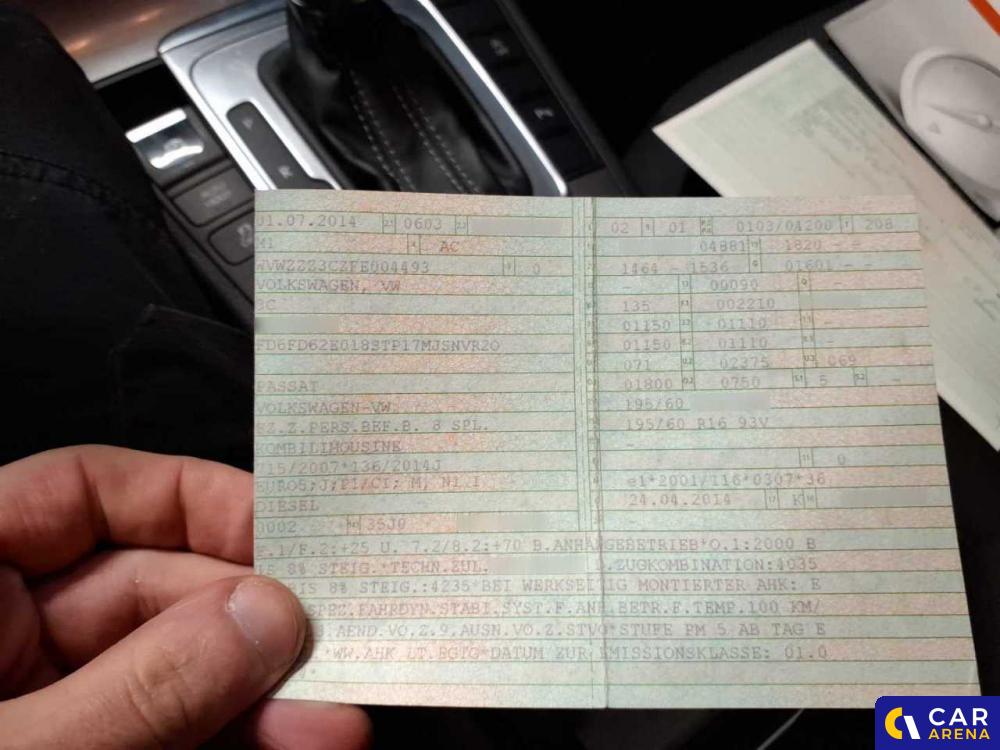 01.07.2014 2.1 0603 2.2 02 9 01 0103/04200 T 208
M1 4 AC 04881 1820 - -
WVWZZZ3CZFE004493 3 0 1464 - 1536 G 01601 - -
VOLKSWAGEN, VW - 00090 -
3C 135 002210
01150 01110
FD6FD62E018STP17MJSNVR20 01150 01110
071 02375 U.3 069
PASSAT 01800 O.2 0750 S.1 5 S.2 -
VOLKSWAGEN-VW 195/60
FZ.Z.PERS.BEF.B. 8 SPL. 195/60 R16 93V
KOMBILIMOUSINE -
715/2007*136/2014J 11 0
EURO5;J;PI/CI; M, N1 I e1*2001/116*0307*36
DIESEL 24.04.2014 17 K 16
0002 35J0
F.1/F.2:+25 U. 7.2/8.2:+70 B.ANHÄNGEBETRIEB*O.1:2000 B
IS 8% STEIG.*TECHN.ZUL. D.ZUGKOMBINATION:4035
IS 8% STEIG.:4235*BEI WERKSEITIG MONTIERTER AHK: E
SPEZ.FAHRDYN.STABI.SYST.F.ANH.BETR.F.TEMP.100 KM/
AEND.VO.Z.9.AUSN.VO.Z.STVO*STUFE PM 5 AB TAG E
*WW.AHK LT.EGTG*DATUM ZUR EMISSIONSKLASSE: 01.0
CAR
ARENA